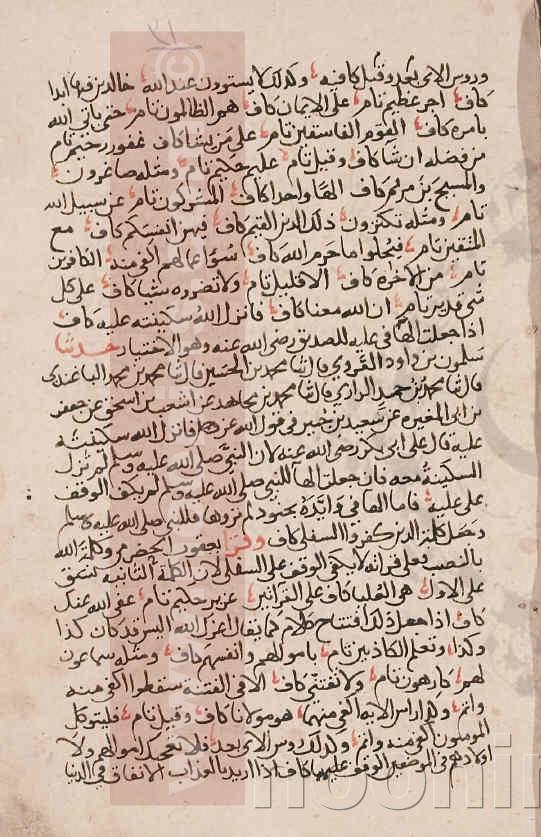 ٢١
ورووس الاى بعد وقيل كافيه وكذلك لا يستوون عند الله خالدين فيها ابدا
كاف اجر عظيم تام على الايمان كاف هم الظالمون تام حتى ياتى الله
بامره كاف القوم الفاسقين تام على من يشا كاف غفور رحيم تام
من فضله ان شا كاف وقيل تام عليم حكيم تام ومثله صاغرون
والمسيح بن مريم كاف الها واحدا كاف المشركون تام عن سبيل الله
تام ومثله تكنزون ذلك الدين القيم كاف فيهن انفسكم كاف مع
المتقين تام فيحلوا ما حرم الله كاف سوء اعمالهم اكفى منه الكافرين
تام من الاخرة كاف الا قليل تام ولا تضروه شيا كاف على كل
شى قدير تام ان الله معنا كاف فانزل الله سكينته عليه كاف
اذا جعلت الها فى عليه للصديق رضى الله عنه وهو الاختيار حدثنا
سلمون بن داود القروى قال نا محمد بن الحسين قال نا محمد بن محمد الباغندى
قال نا محمد بن حميد الرازى قال نا محمد بن مجاهد عن اشعث بن اسحق عن جعفر
بن ابى المغيره عن سعيد بن جبير فى قول الله عز وجل فانزل الله سكينته
عليه قال على ابى بكر رضى الله عنه لان النبى صلى الله عليه وسلم لم تزل
السكينة معه فان جعلت الها للنبى صلى الله عليه وسلم لم يكف الوقف
على عليه فاما الها فى وايده بجنود لم تروها فللنبى صلى الله عليه وسلم
وجعل كلمة الذين كفروا السفلى كاف وقرا يعقوب الحضرمى وكلمة الله
بالنصب وعلى قراته لا يكفى الوقف على السفلى لان الكلمة الثانيه نسق
على الاولى هى العليا كاف على القراتين عزيز حكيم تام عفى الله عنك
كاف اذا جعل ذلك افتتاح كلام كما يقال اعزك الله اليس قد كان كذا
وكذا وتعلم الكاذبين تام باموالهم وانفسهم كاف ومثله سماعون
لهم كارهون تام ولا تفتنى كاف الا فى الفتنة سقطوا اكفى منه
واتم وكذا راس الاية اكفى منهما هو مولانا كاف وقيل تام فليتوكل
المومنون اكفى منه واتم وكذلك رووس الاى بعد فلا تعجبك اموالهم ولا
اولادهم فى الموضعين الوقف عليهما كاف اذا اريد بالعذاب الانفاق فى الدنيا
noorlin